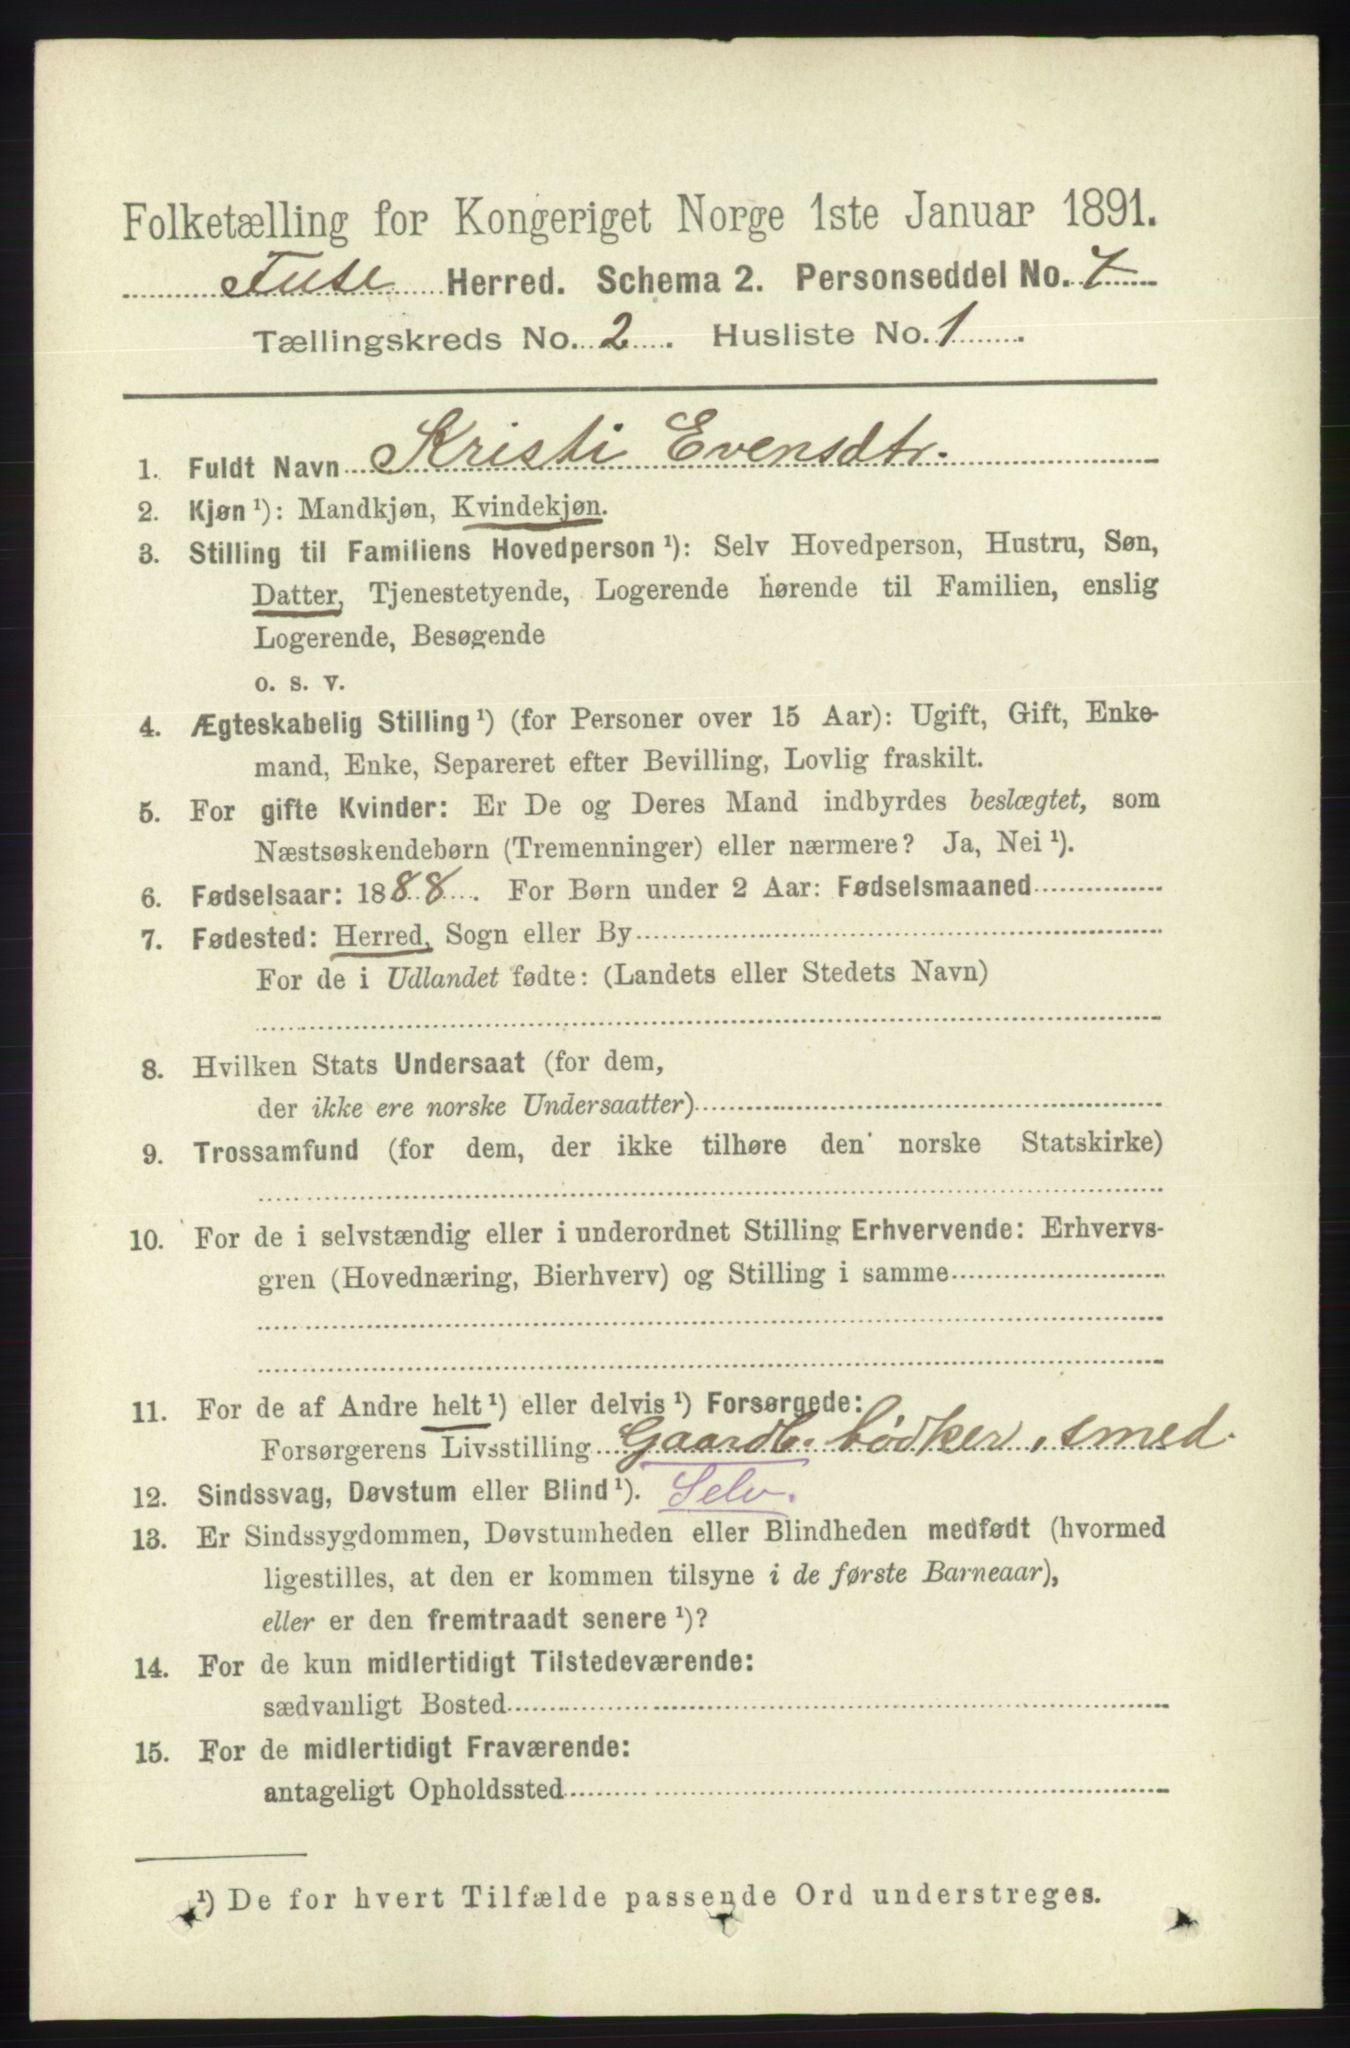 Folketælling for Kongeriget Norge 1ste Januar 1891.
Fuse Herred. Schema 2. Personseddel No. 7
Tællingskreds No. 2. Husliste No. 1.
1. Fuldt Navn Kristi Evensdtr.
2. Kjøn ¹): Mandkjøn, Kvindekjøn.
3. Stilling til Familiens Hovedperson ¹): Selv Hovedperson, Hustru, Søn,
Datter, Tjenestetyende, Logerende hørende til Familien, enslig
Logerende, Besøgende
o. s. v.
4. Ægteskabelig Stilling ¹) (for Personer over 15 Aar): Ugift, Gift, Enke-
mand, Enke, Separeret efter Bevilling, Lovlig fraskilt.
5. For gifte Kvinder: Er De og Deres Mand indbyrdes beslægtet, som
Næstsøskendebørn (Tremenninger) eller nærmere? Ja, Nei ¹).
6. Fødselsaar: 1888. For Børn under 2 Aar: Fødselsmaaned
7. Fødested: Herred, Sogn eller By
For de i Udlandet fødte: (Landets eller Stedets Navn)
8. Hvilken Stats Undersaat (for dem,
der ikke ere norske Undersaatter)
9. Trossamfund (for dem, der ikke tilhøre den norske Statskirke)
10. For de i selvstændig eller i underordnet Stilling Erhvervende: Erhvervs-
gren (Hovednæring, Bierhverv) og Stilling i samme
11. For de af Andre helt ¹) eller delvis ¹) Forsørgede:
Forsørgerens Livsstilling Gaardb. bödker, smed.
12. Sindssvag, Døvstum eller Blind ¹). Selv.
13. Er Sindssygdommen, Døvstumheden eller Blindheden medfødt (hvormed
ligestilles, at den er kommen tilsyne i de første Barneaar),
eller er den fremtraadt senere ¹)?
14. For de kun midlertidigt Tilstedeværende:
sædvanligt Bosted
15. For de midlertidigt Fraværende:
antageligt Opholdssted
¹) De for hvert Tilfælde passende Ord understreges.